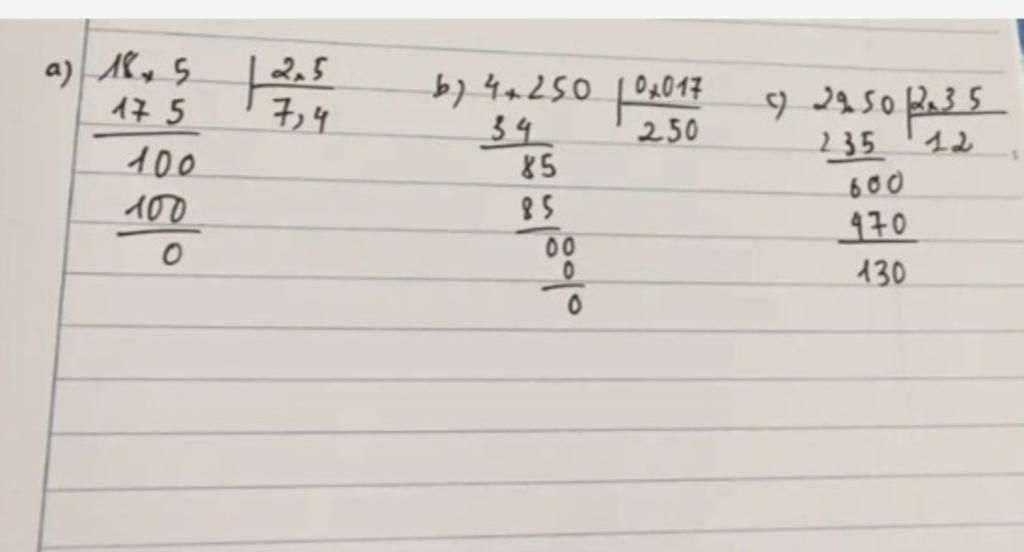 a) 18,5 | 2,5
175 7,4
100
100
0
b) 4,250 | 0,017
34 250
85
85
00
0
0
c) 29,50 | 2,35
235 12
600
470
130